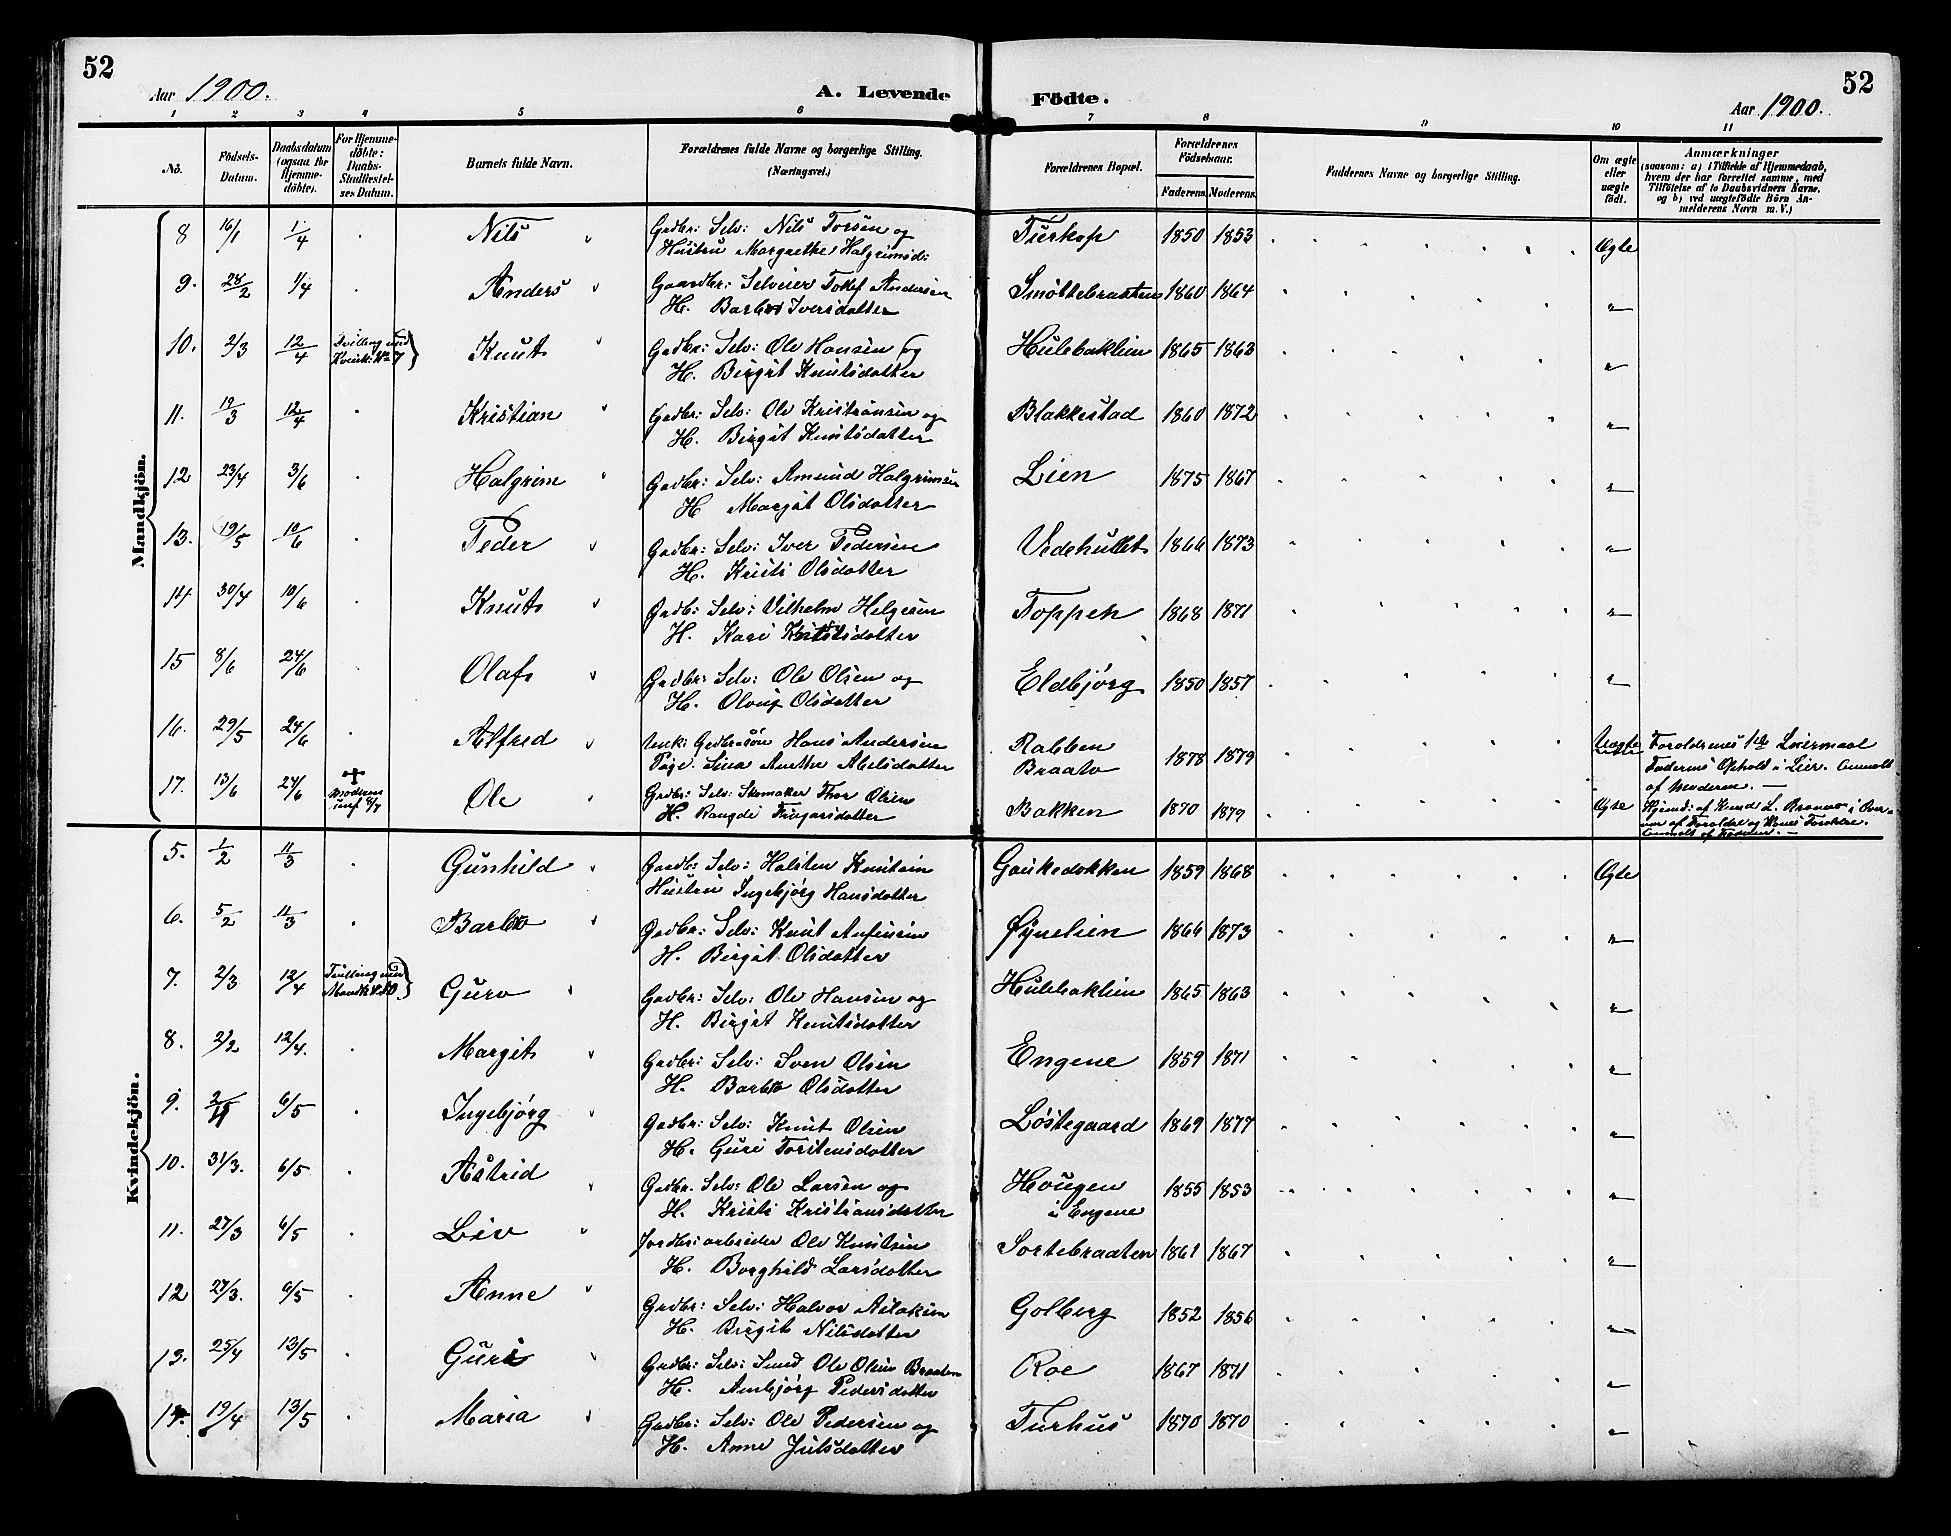 52
52
Aar 1900.
A. Levende Födte.
Aar 1900.
1 2 3 4 5 6 7 8 9 10 11
No. Födsels-Datum. Daabsdatum (ogsaa for Hjemme-döbte). For Hjemme-döbte: Daabs-Stadfæstel-ses Datum. Barnets fulde Navn. Forældrenes fulde Navne og borgerlige Stilling. (Næringsvei.) Forældrenes Bopæl. Forældrenes Födselsaar. Faderens. Moderens. Faddernes Navne og borgerlige Stilling. Om ægte eller uægte födt. Anmærkninger
(saasom: a) i Tilfælde af Hjemmedaab, hvem der har forrettet samme, med Tilföielse af to Daabsvidners Navne, og b) ved uægtefödte Börn An-melderens Navn m. V.)
Mandkjön.
8 16/1 1/4 Nils Grdbr: Selv: Nils Torsen og Turkop 1850 1853 Ægte
Hustru Margrethe Halgrimsd:
9. 28/2 1/4 Anders Gaardbr: Selveier Tolef Andersen Smøttebraaten 1860 1864 "
H. Barbro Iversdatter
10. 2/3 12/4 Tvilling med Kvindk: No 7 Knut Grdbr: Selv: Ole Hansen og Hulebaklien 1865 1863 "
H. Birgit Knutsdatter
11. 19/3 12/4 Kristian Grdbr: Selv: Ole Kristiansen og Blakkestad 1860 1872 "
H. Birgit Knutsdatter
12 23/4 3/6 Halgrim Grdbr: Selv: Amund Halgrimsen Lien 1875 1867 "
H Margit Olsdatter
13. 19/5 10/6 Peder Grdbr: Selv: Iver Pedersen Vedehullet 1866 1873 "
H. Kristi Olsdatter
14 30/4 10/6 Knut Grdb: Selv: Vilhelm Helgesen Toppen 1868 1871 "
H. Kari Knutsdatter
15 8/6 24/6 Olaf Grdbr: Selv: Ole Olsen og Eldbjørg 1850 1857 "
H. Olsdatter
16. 29/5 24/6 Alfred Unk: Grdbr.søn Hans Andersen Rabben 1878 1879 Uægte Forældrenes 1ste Leiermaal
Pige. Lina Anethe Abelsdatter Braato Faderens Ophold i Lier. Anmeldt af Moderen. —
17. 13/6 24/6 Moderens Ole Grdbr: Selv: Skomaker Thor Olsen Bakken 1870 1879 Ægte Hjemd: af Knud L.
H. Rangdi
Kvindekjön.
5. 1/2 11/3 Gunhild Gardb: Selv: Halsten Knutsen Gaukedokken 1859 1868 Ægte
Hustru Ingebjørg Hansdatter
6. 5/2 11/3 Barbro Grdbr: Selv: Knut Anfinsen Øynelien 1866 1873 "
H. Birgit Olsdatter
7. 2/3 12/4 Tvilling med Mandk: No 10 Guro Grdbr: Selv: Ole Hansen og Hulebaklien 1865 1863 "
H. Birgit Knutsdatter
8. 12/4. Margit Grdbr: Selv: Sven Olsen Engene 1859 1871 "
H. Barbro Olsdatter
9. 6/5 Ingebjørg Grdbr: Selv: Knut Olsen Løstegaard 1869 1877 "
H. Guri Torstensdatter
10. 31/3. 6/5 Astrid Grdbr. Selv: Ole Larsen og Hougen i Engene 1855 1853 "
H. Kristi Kristiansdatter
11. 27/3 6/5 Liv Jordbr: arbeider Ole Knutsen Sortebraaten 1861 1867 "
H. Borghild Larsdatter
12 27/3. 6/5 Anne Grdbr: Selv: Halvor Aslaksen Golberg 1852 1856 "
H. Birgit Nilsdatter
13. 25/4 13/5 Guri Grdbr: Selv: Ole Olsen Braaten Roe 1867 1871 "
H. Ambjørg Pedersdatter
14. 19/4 13/5 Maria Grdbr: Selv: Ole Pedersen og Turhus 1870 1870 "
H. Anne Julsdatter